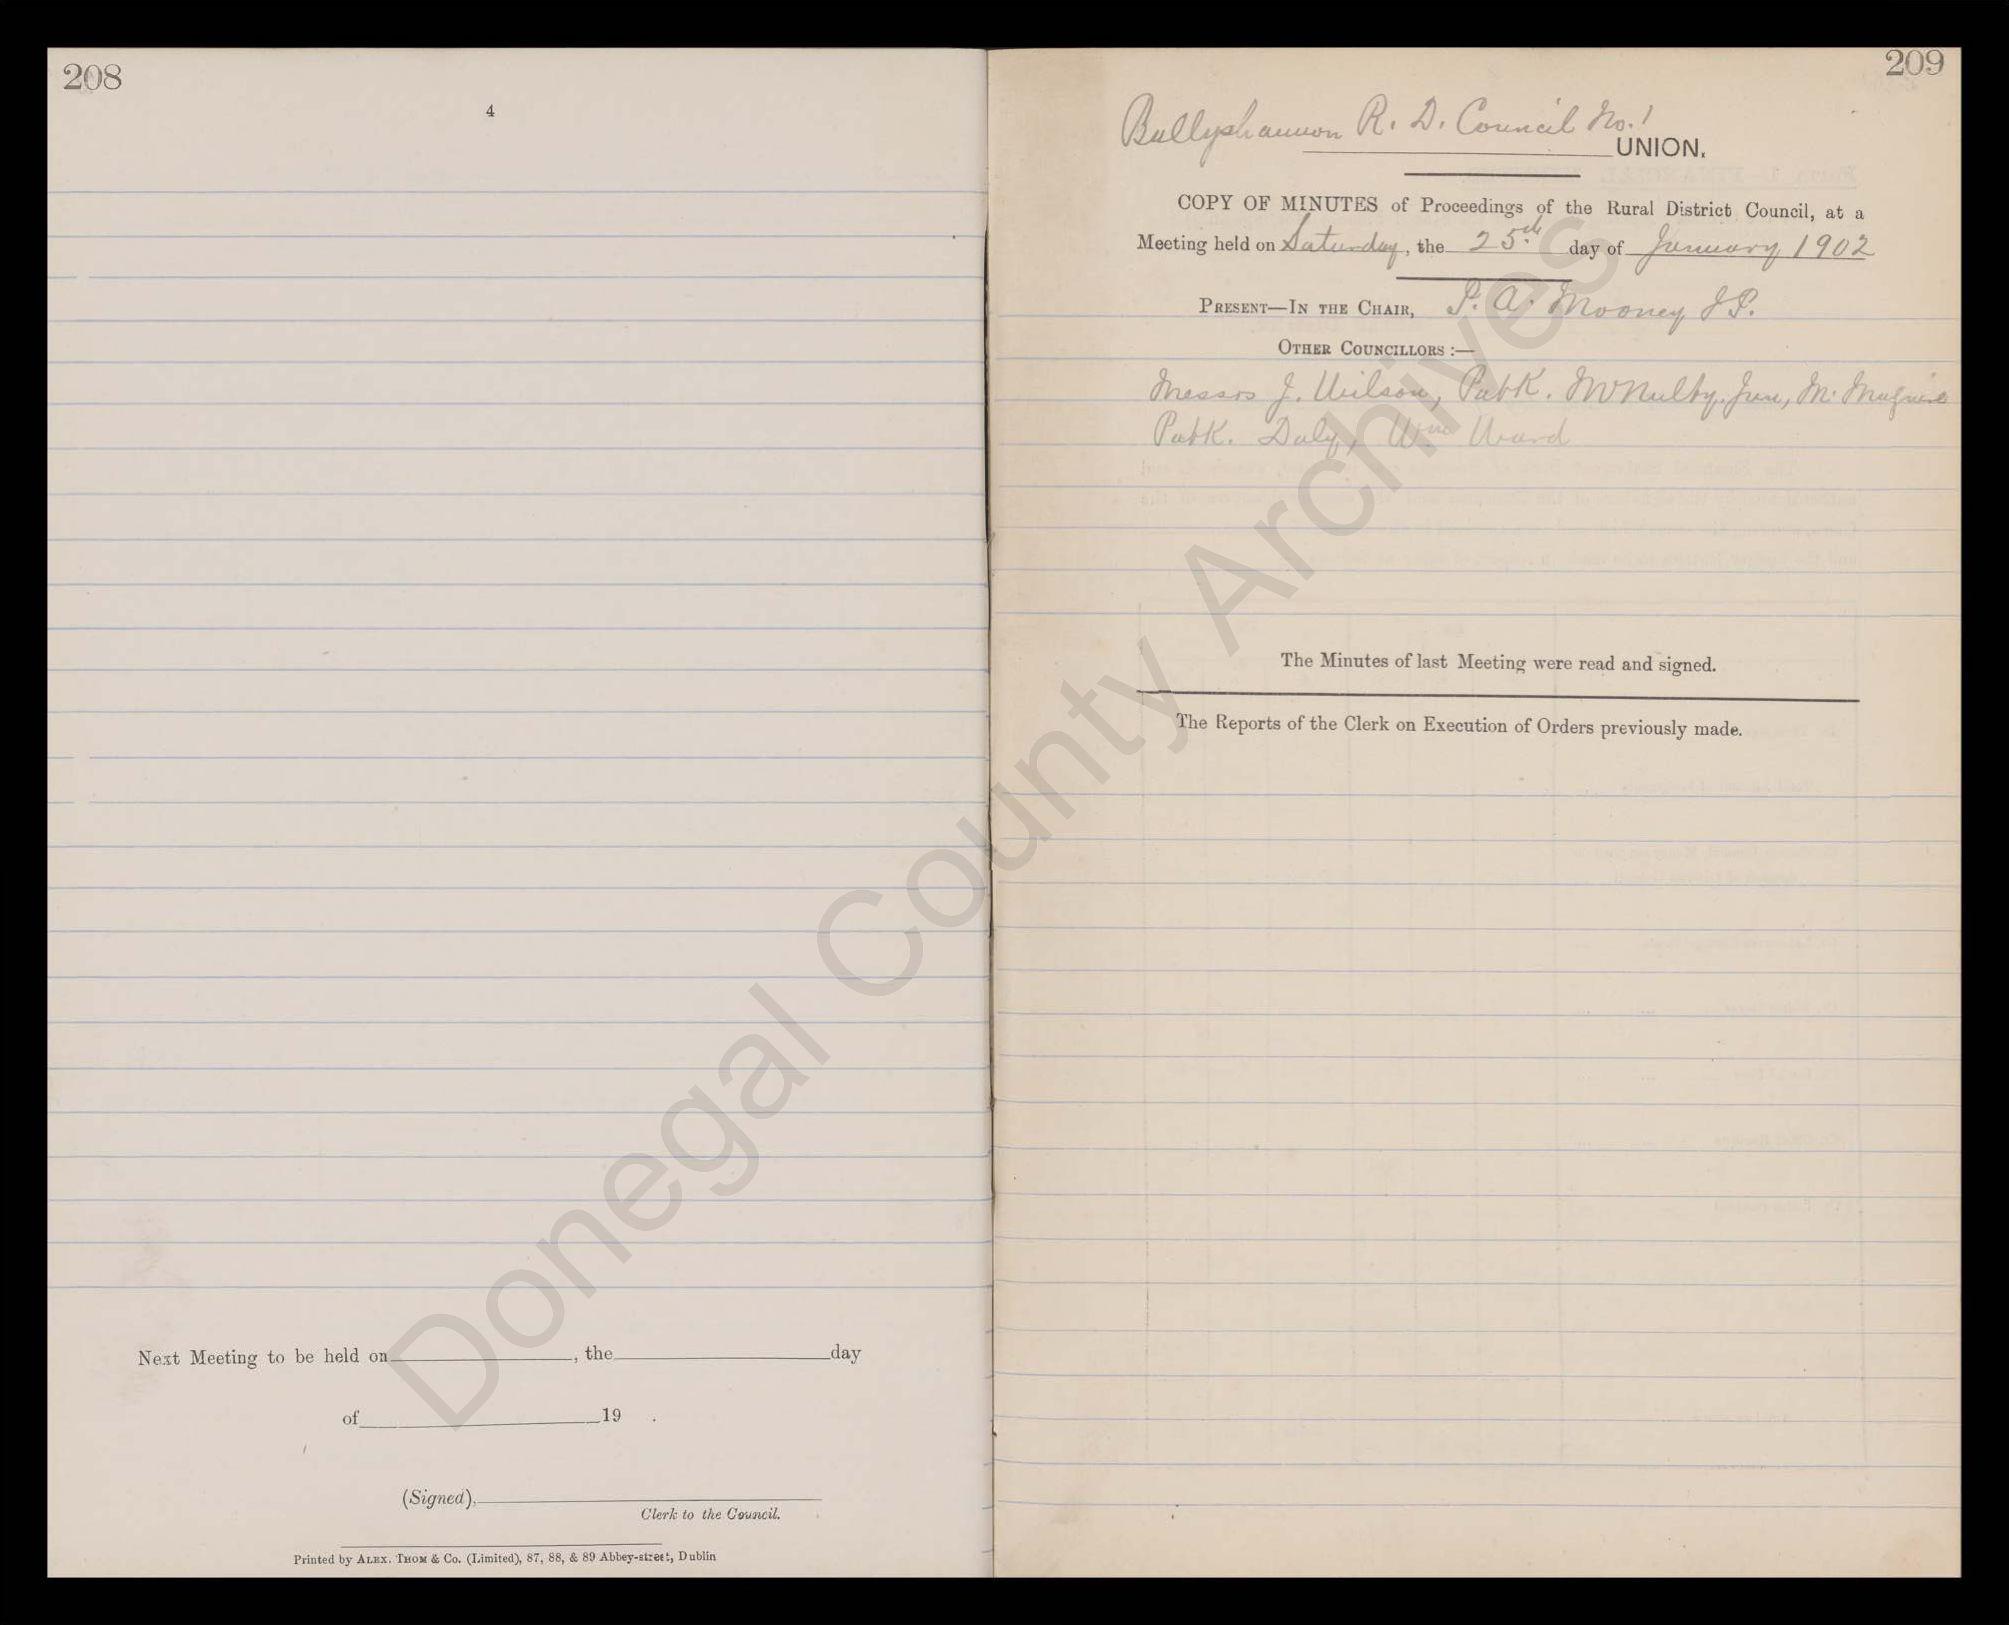 208
4
Next Meeting to be held on , the day
of 19 .
(Signed),
Clerk to the Council.
Printed by ALEX. THOM & Co. (Limited), 87, 88, & 89 Abbey-street, Dublin
209
Ballyshannon R. D. Council No. 1
UNION.
COPY OF MINUTES of Proceedings of the Rural District Council, at a
Meeting held on Saturday, the 25th day of January 1902
PRESENT—IN THE CHAIR, P. A. Mooney J.P.
OTHER COUNCILLORS :—
Messrs J. Wilson, Patk. McNulty, Jun, M. Maguire
Patk. Daly, Wm Ward
The Minutes of last Meeting were read and signed.
The Reports of the Clerk on Execution of Orders previously made.
Donegal County Archives